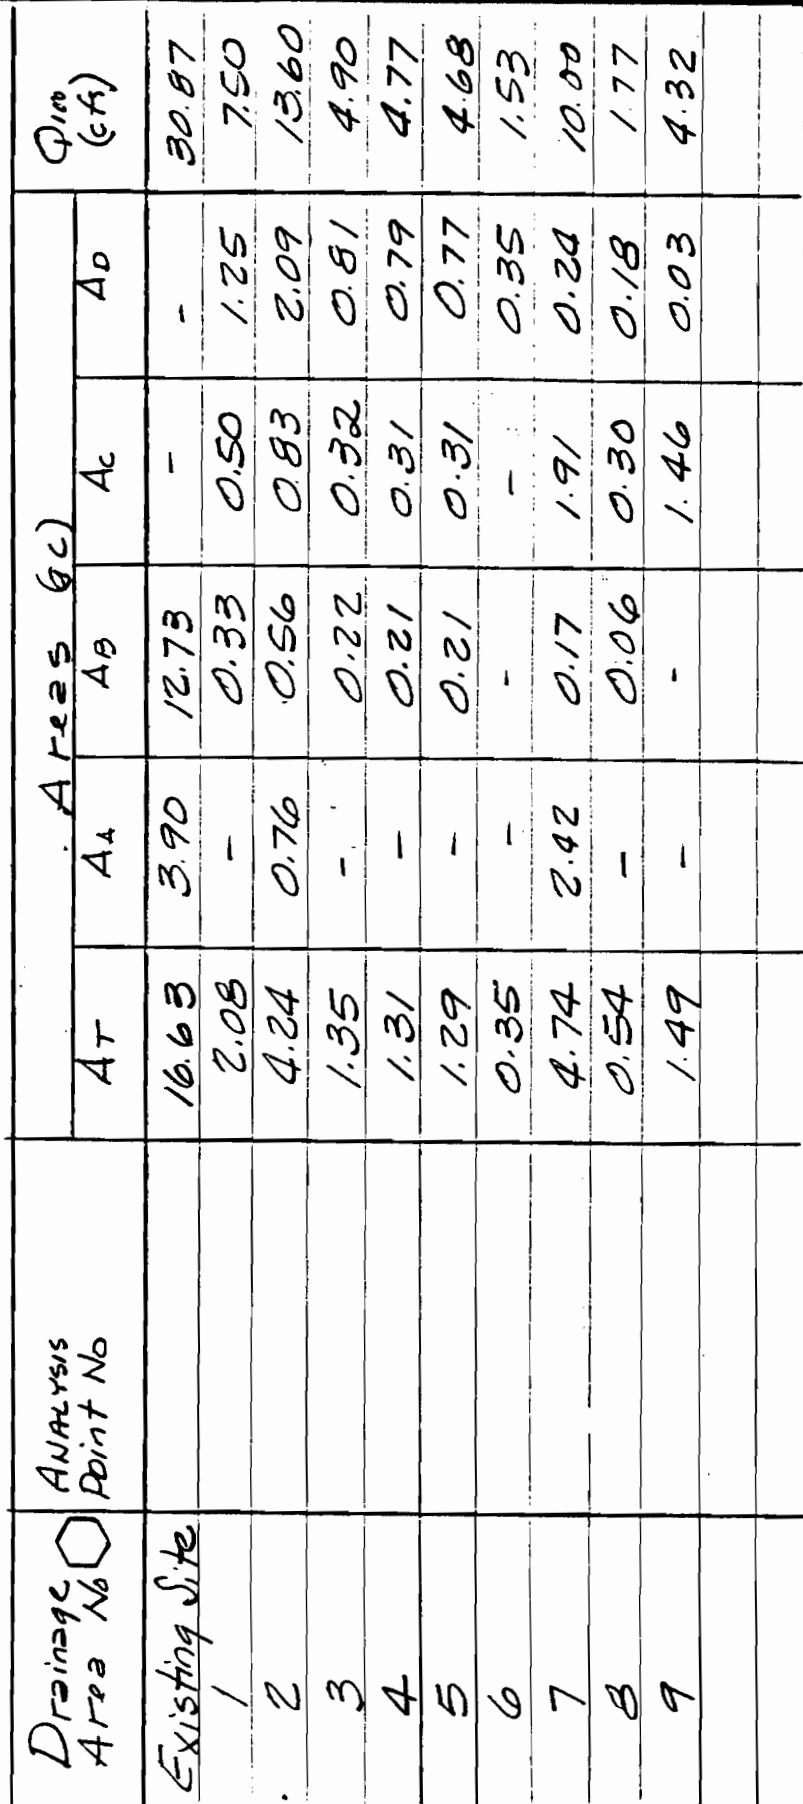 Drainage Area No ANALYSIS Point No Areas (ac) Q100 (cfs)
AT AA AB AC AD
Existing Site 16.63 3.90 12.73 - - 30.87
1 2.08 - 0.33 0.50 1.25 7.50
2 4.24 0.76 0.56 0.83 2.09 13.60
3 1.35 - 0.22 0.32 0.81 4.90
4 1.31 - 0.21 0.31 0.79 4.77
5 1.29 - 0.21 0.31 0.77 4.68
6 0.35 - - - 0.35 1.53
7 4.74 2.42 0.17 1.91 0.24 10.00
8 0.54 - 0.06 0.30 0.18 1.77
9 1.49 - - 1.46 0.03 4.32